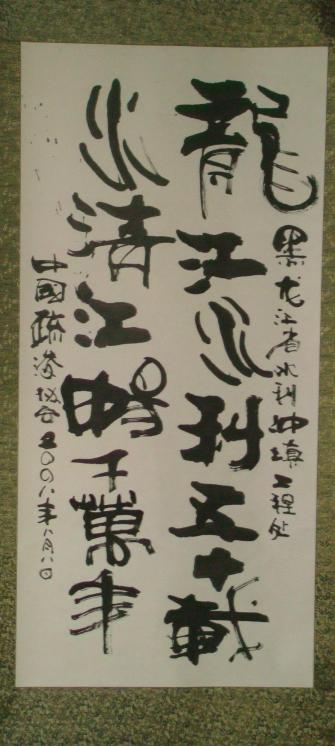 黑龙江省水利冲填工程处
龍江水利五十載
水清江暢千萬年
中國疏浚协会二〇〇八年八月八日